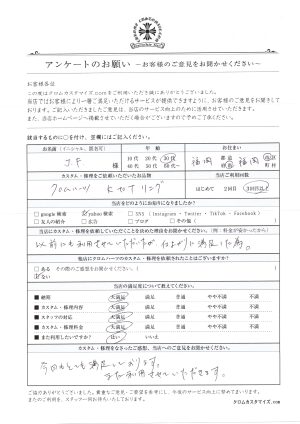 アンケートのお願い ～お客様のご意見をお聞かせください～
お客様各位
この度はクロムカスタマイズ.comをご利用いただき誠にありがとうございました。
当店ではお客様により一層ご満足いただけるサービスが提供できますように、お客様のご意見をお聞きして
おります。ご記入いただきましたご意見は、当店のサービス向上のために活用させていただきます。
また、当店ホームページへ掲載させていただく場合がございますので予めご了承ください。
該当するものに○を付け、空欄にはご記入ください。
お名前（イニシャル、匿名可） 年齢 お住まい
J.F 様
10代 20代 30代
40代 50代 60代～
福岡 都道府県 福岡 市区町村
カスタム・修理をご依頼いただいたお品物 当店ご利用回数
クロムハーツ Kカナリング
はじめて 2回目 3回目以上
当店をどのようにお知りになりましたか？
□google検索 □yahoo検索 □SNS（Instagram・Twitter・TikTok・Facebook）
□友人の紹介 □広告 □ブログ □その他（ ）
当店にカスタム・修理を依頼していただくことを決めた理由をお聞かせください（例：料金が安かったから）
以前にも利用させていただき仕上がりに満足した為。
他店にクロムハーツのカスタム・修理を依頼されたことはございますか？
□ある その際のご感想をお聞かせください。
□ない
当店の満足度について教えてください。
■総合 大満足 満足 普通 やや不満 不満
■カスタム・修理内容 大満足 満足 普通 やや不満 不満
■スタッフの対応 大満足 満足 普通 やや不満 不満
■カスタム・修理料金 大満足 満足 普通 やや不満 不満
■また利用したいですか？ はい いいえ
カスタム・修理をなさったご感想、当店へのご意見をお聞かせください。
今回もとても満足しております。
また利用させていただきます。
ご協力ありがとうございました。貴重なご意見・ご要望を参考にし、今後のサービス向上に努めてまいります。
またのご利用を、スタッフ一同お待ちいたしております。
クロムカスタマイズ.com